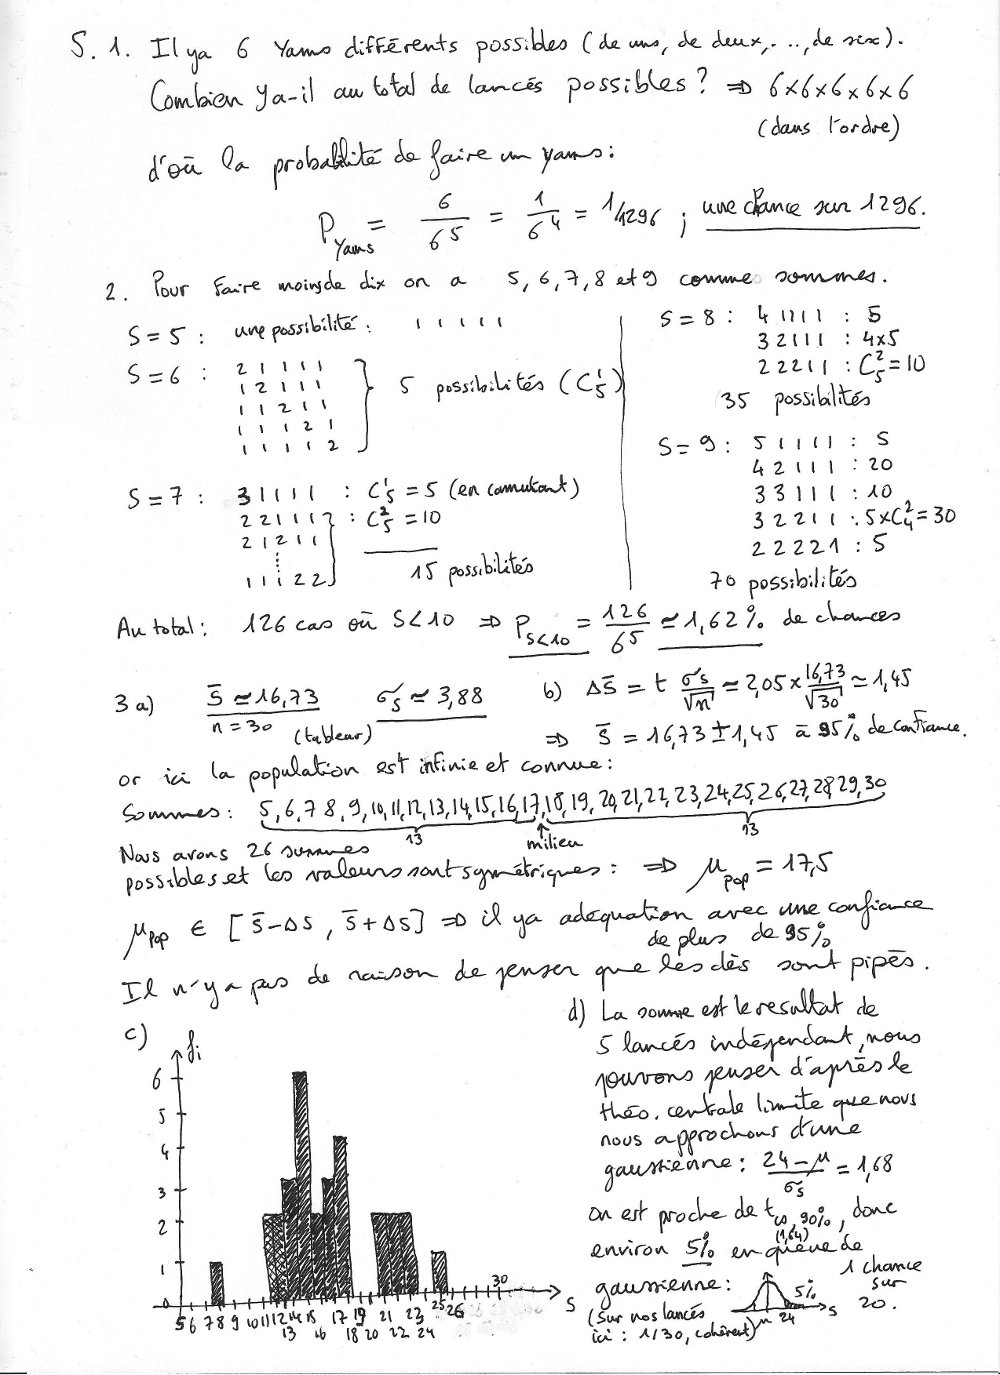 5. 1. Il y a 6 Yams différents possibles (de uns, de deux,..., de six).
Combien y a-il au total de lancés possibles? ⇒ 6×6×6×6×6
(dans l'ordre)
d'où la probabilité de faire un yams:
P Yams = 6/6^5 = 1/6^4 = 1/1296 ; une chance sur 1296.
2. Pour faire moins de dix on a 5, 6, 7, 8 et 9 comme sommes.
S=5 : une possibilité: 1 1 1 1 1
S=6 : 2 1 1 1 1
1 2 1 1 1
1 1 2 1 1
1 1 1 2 1
1 1 1 1 2
5 possibilités (C_5^1)
S=7 : 3 1 1 1 1 : C_5^1 = 5 (en commutant)
2 2 1 1 1 : C_5^2 = 10
2 1 2 1 1
⋮
1 1 1 2 2
15 possibilités
S=8 : 4 1 1 1 1 : 5
3 2 1 1 1 : 4×5
2 2 2 1 1 : C_5^2 = 10
35 possibilités
S=9 : 5 1 1 1 1 : 5
4 2 1 1 1 : 20
3 3 1 1 1 : 10
3 2 2 1 1 : 5×C_4^2 = 30
2 2 2 2 1 : 5
70 possibilités
Au total: 126 cas où S<10 ⇒ P S<10 = 126/6^5 ≃ 1,62% de chances
3 a) S̄ ≃ 16,73 σs ≃ 3,88
n = 30 (tableur)
b) ΔS̄ = t σs/√n ≃ 2,05 × 16,73/√30 ≃ 1,45
⇒ S̄ = 16,73 ± 1,45 à 95% de confiance.
or ici la population est infinie et connue:
Sommes: 5, 6, 7 8, 9, 10, 11, 12, 13, 14, 15, 16, 17, 18, 19, 20, 21, 22, 23, 24, 25, 26, 27, 28, 29, 30
13 milieu 13
Nous avons 26 sommes
possibles et les valeurs sont symétriques: ⇒ μpop = 17,5
μpop ∈ [S̄-ΔS, S̄+ΔS] ⇒ il y a adéquation avec une confiance
de plus de 95%
Il n'y a pas de raison de penser que les dés sont pipés.
c)
fi
6
5
4
3
2
1
0
5 6 7 8 9 10 11 12 14 15 17 19 21 23 25 26 30 S
13 16 18 20 22 24
d) La somme est le resultat de
5 lancés indépendant, nous
pouvons penser d'après le
théo. centrale limite que nous
nous approchons d'une
gaussienne: 24-μ/σs = 1,68
on est proche de t∞,90%, donc
(1,64)
environ 5% en queue de
gaussienne:
1 chance
sur
20.
(sur nos lancés
ici : 1/30, cohérent)
5%
μ 24 S